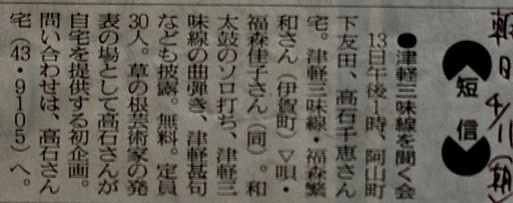 朝日 4/11(朝)
短信
●津軽三味線を聞く会
13日午後1時、阿山町
下友田、高石千恵さん
宅。津軽三味線・福森繁
和さん(伊賀町)▽唄・
福森佳子さん(同)。和
太鼓のソロ打ち、津軽三
味線の曲弾き、津軽甚句
なども披露。無料。定員
30人。草の根芸術家の発
表の場として高石さんが
自宅を提供する初企画。
問い合わせは、高石さん
宅(43・9105)へ。